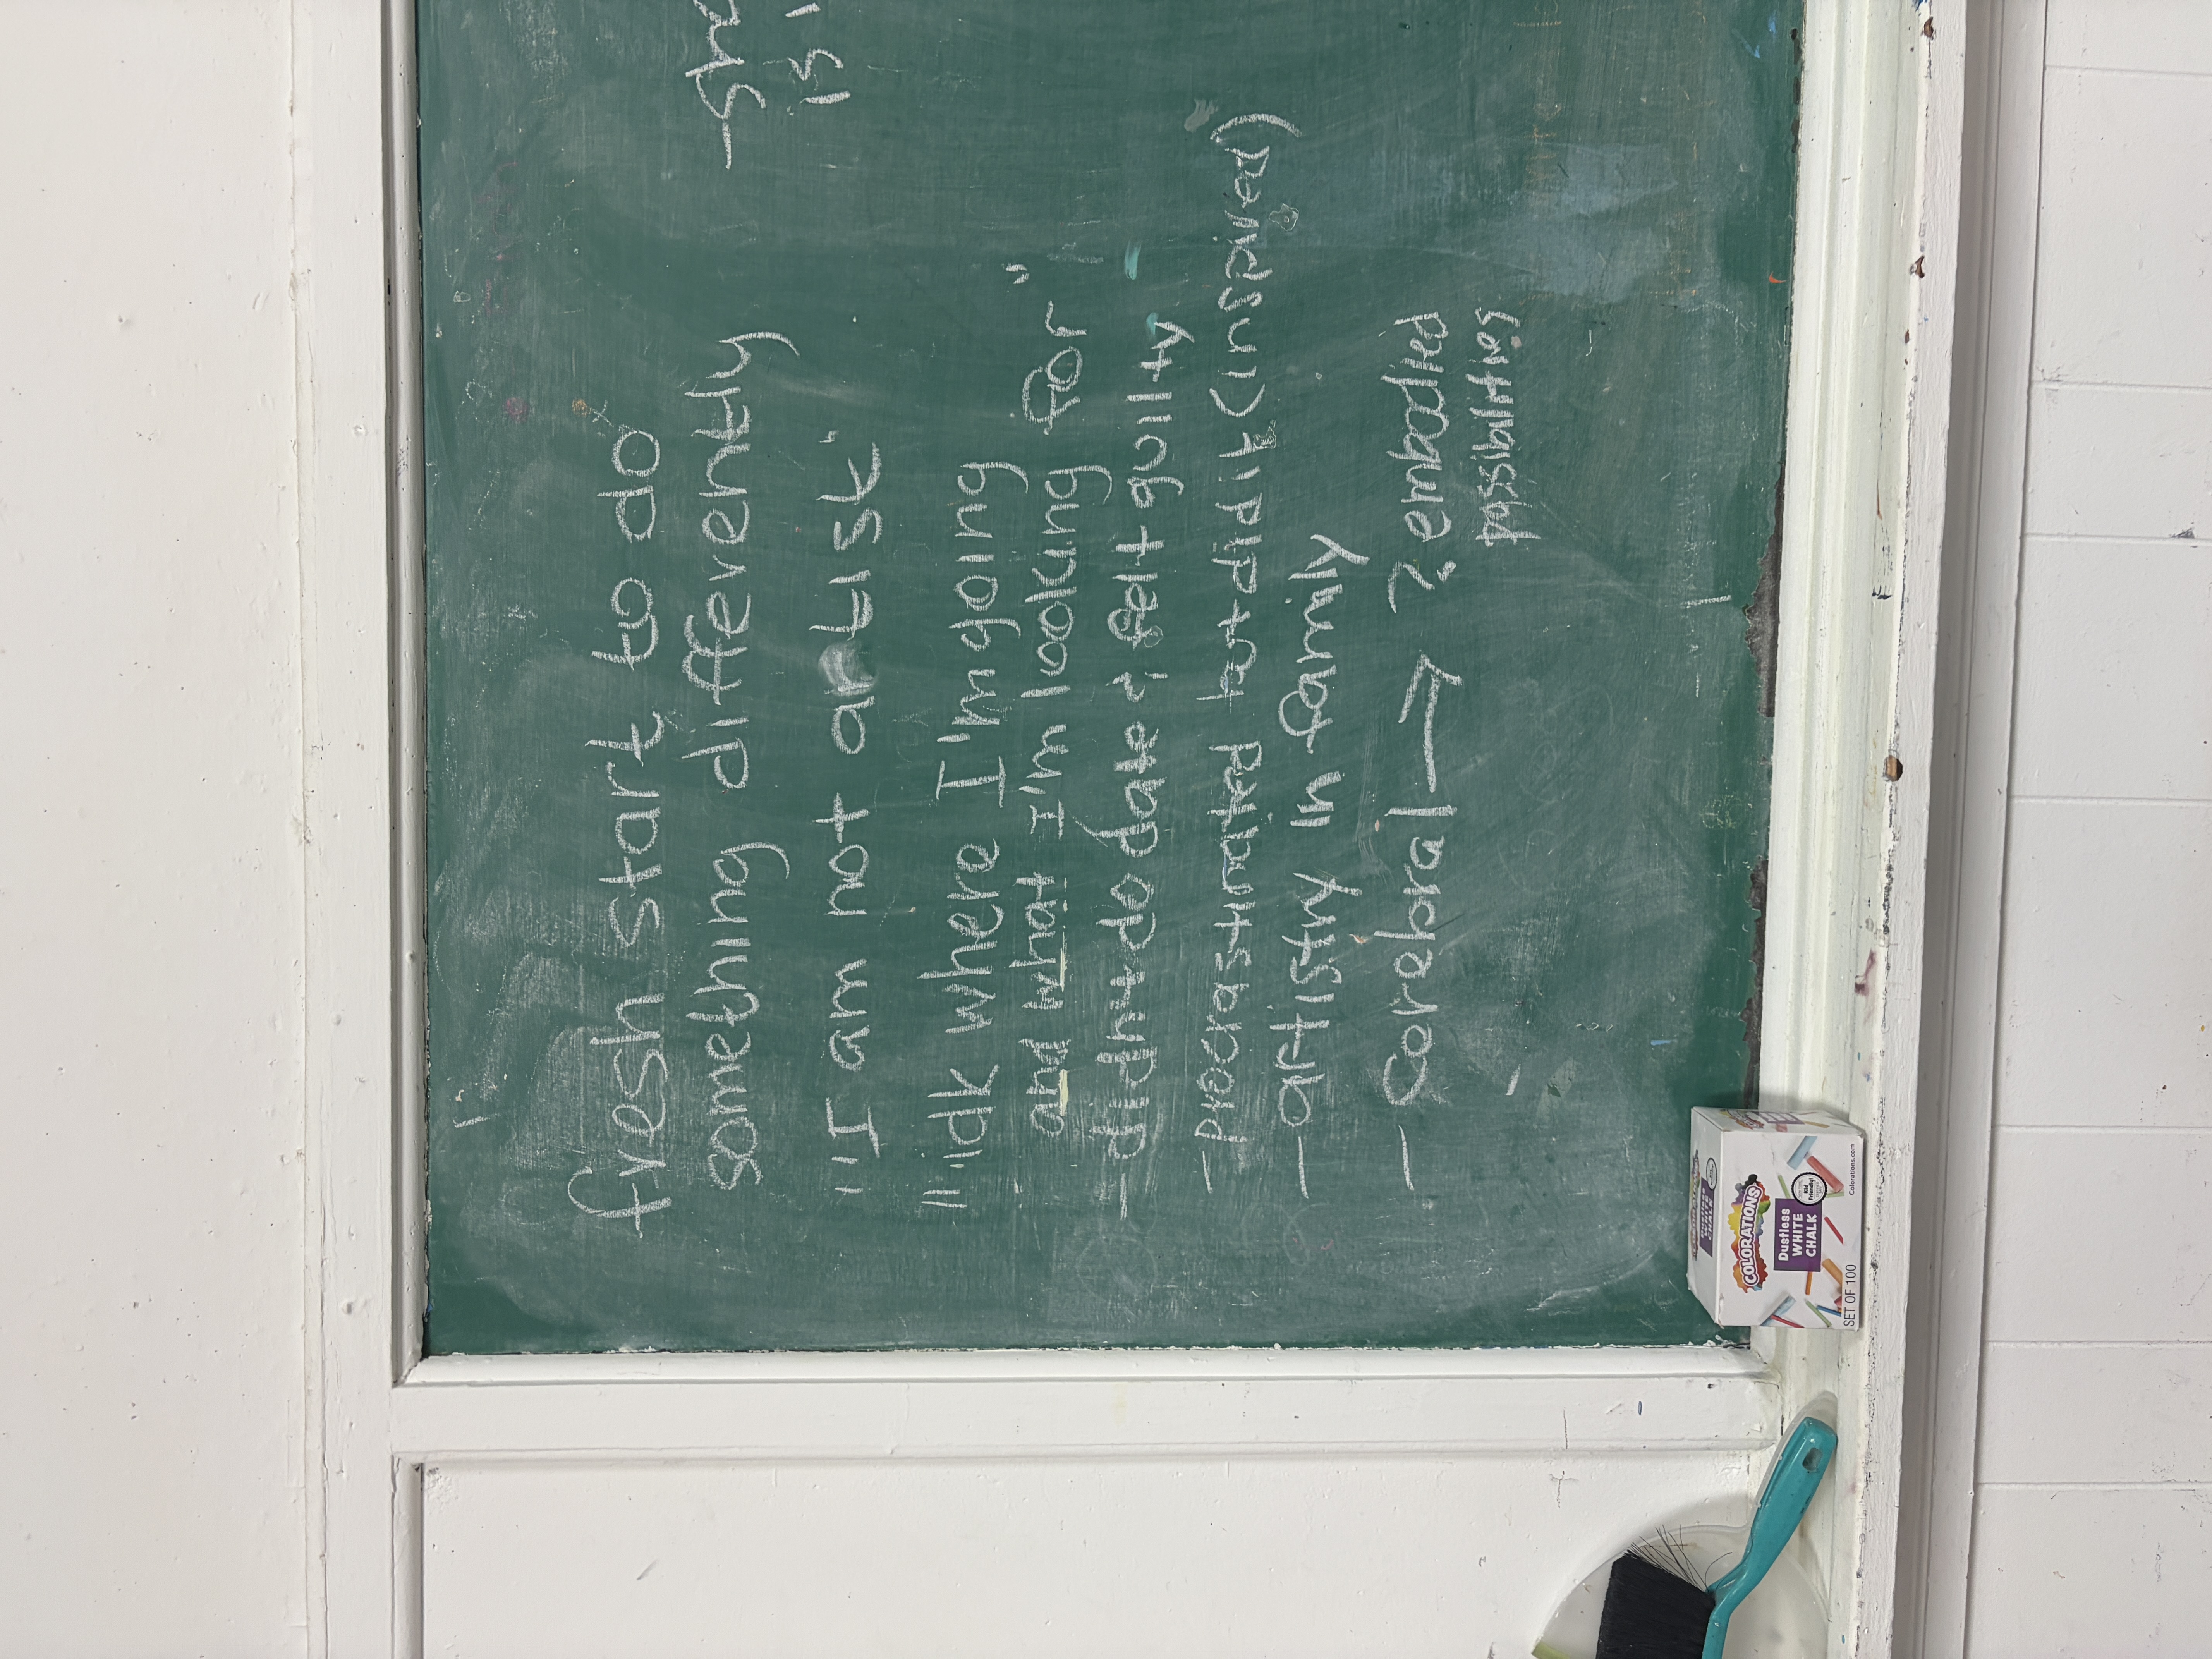 fresh start to do
something differently
"I am not artist"
"idk where I'm going
and what I'm looking for"
- didn't do date & felt guilty
- procrastinated but did it (inspired)
- artistry in family
- cerebral → ? embodied
possibilities
- 
is
COLORATIONS
Dustless
WHITE
CHALK
SET OF 100
Colorations.com